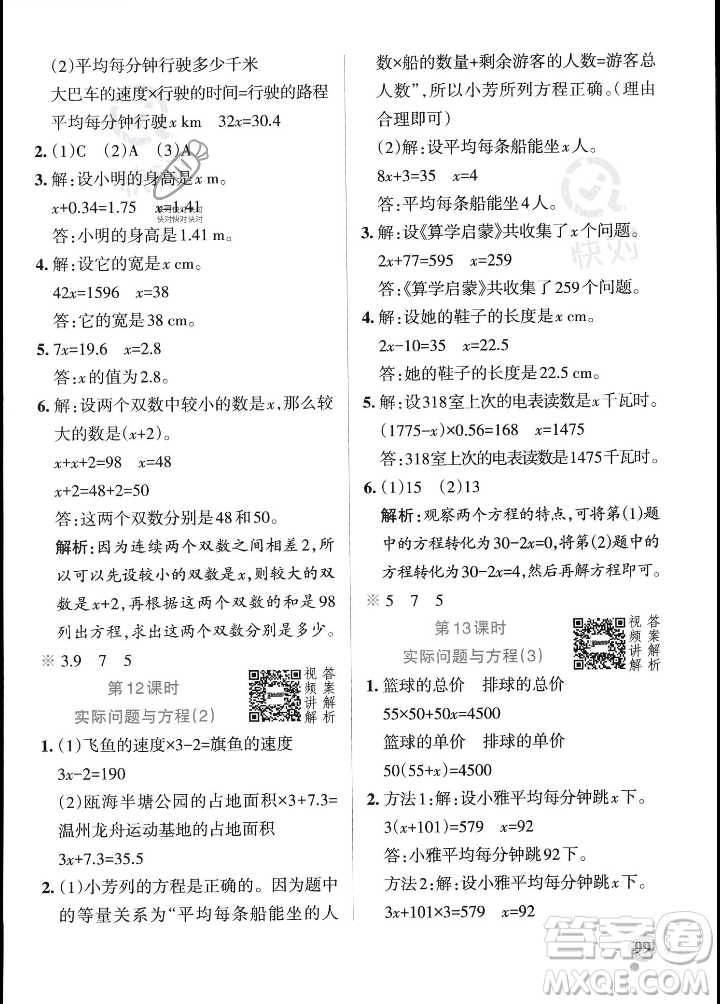 (2)平均每分钟行驶多少千米
大巴车的速度×行驶的时间=行驶的路程
平均每分钟行驶x km　32x=30.4
2. (1)C　(2)A　(3)A
3. 解:设小明的身高是x m。
x+0.34=1.75　x=1.41
答:小明的身高是1.41 m。
4. 解:设它的宽是x cm。
42x=1596　x=38
答:它的宽是38 cm。
5. 7x=19.6　x=2.8
答:x的值为2.8。
6. 解:设两个双数中较小的数是x,那么较
大的数是(x+2)。
x+x+2=98　x=48
x+2=48+2=50
答:这两个双数分别是48和50。
解析:因为连续两个双数之间相差2,所
以可以先设较小的双数是x,则较大的双
数是x+2。再根据这两个双数的和是98
列出方程,求出这两个双数分别是多少。
※ 3.9　7　5
第12课时
实际问题与方程(2)
视答
频案
讲解
解析
1. (1)飞鱼的速度×3-2=旗鱼的速度
3x-2=190
(2)瓯海半塘公园的占地面积×3+7.3=
温州龙舟运动基地的占地面积
3x+7.3=35.5
2. (1)小芳列的方程是正确的。因为题中
的等量关系为“平均每条船能坐的人
数×船的数量+剩余游客的人数=游客总
人数”,所以小芳所列方程正确。(理由
合理即可)
(2)解:设平均每条船能坐x人。
8x+3=35　x=4
答:平均每条船能坐4人。
3. 解:设《算学启蒙》共收集了x个问题。
2x+77=595　x=259
答:《算学启蒙》共收集了259个问题。
4. 解:设她的鞋子的长度是x cm。
2x-10=35　x=22.5
答:她的鞋子的长度是22.5 cm。
5. 解:设318室上次的电表读数是x千瓦时。
(1775-x)×0.56=168　x=1475
答:318室上次的电表读数是1475千瓦时。
6. (1)15　(2)13
解析:观察两个方程的特点,可将第(1)题
中的方程转化为30-2x=0,将第(2)题中
的方程转化为30-2x=4,然后再解方程即可。
※ 5　7　5
第13课时
实际问题与方程(3)
视答
频案
讲解
解析
1. 篮球的总价　排球的总价
55×50+50x=4500
篮球的单价　排球的单价
50(55+x)=4500
2. 方法1:解:设小雅平均每分钟跳x下。
3(x+101)=579　x=92
答:小雅平均每分钟跳92下。
方法2:解:设小雅平均每分钟跳x下。
3x+101×3=579　x=92
99
快对
快对
快对快对快对
快对快对快对
答案圈
MXQE.COM